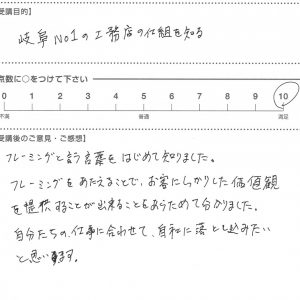 受講目的】
岐阜No1の工務店の仕組を知る
点数に○をつけて下さい
0 1 2 3 4 5 6 7 8 9 10
不満 普通 満足
受講後のご意見・ご感想】
フレーミングと言う言葉をはじめて知りました。
フレーミングをあたえることで、お客にしっかりした価値観
を提供することが出来ることをあらためて分かりました。
自分たちの仕事に合わせて、自社に落とし込みたい
と思います。